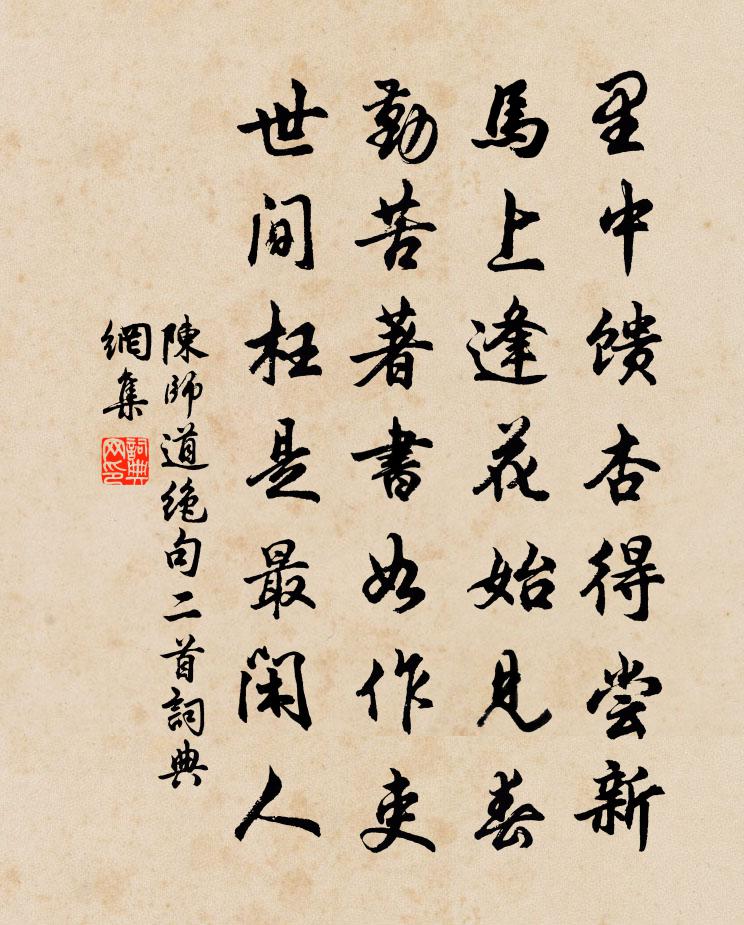 里中馈杏得尝新
馬上逢花始見春
勤苦著書如作吏
世间枉是最闲人
陳師道绝句二首詞典
網集
詞典
网印